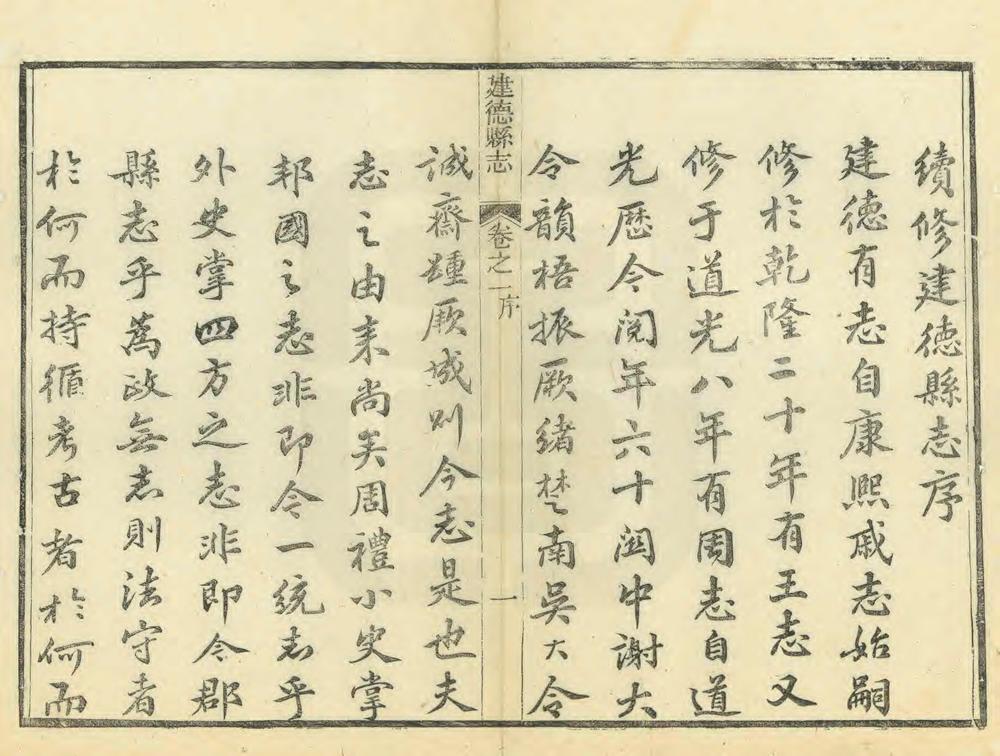 續修建德縣志序
建德有志自康熙戚志始嗣
修於乾隆二十年有王志又
修于道光八年有周志自道
光歷今閱年六十閩中謝大
令韻梧振厥緒楚南吳大令
建德縣志 卷之一 序 一
誠齋踵厥成則今志是也夫
志之由来尚矣周禮小史掌
邦國之志非即今一統志乎
外史掌四方之志非即今郡
縣志乎為政無志則法守者
於何而持循考古者於何而